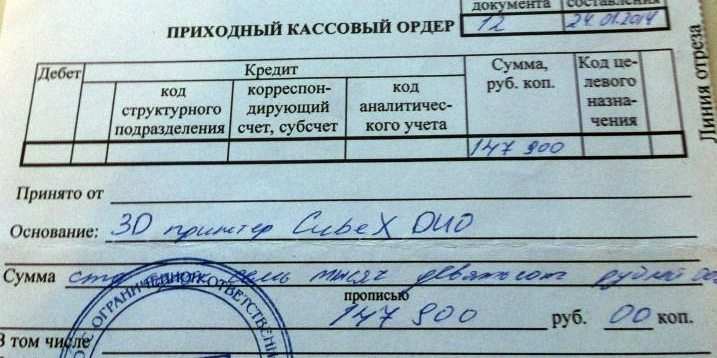 документа составления
ПРИХОДНЫЙ КАССОВЫЙ ОРДЕР 12 24.01.2014
Дебет Кредит Сумма, руб. коп. Код целевого назначения
код структурного подразделения корреспондирующий счет, субсчет код аналитического учета
147 900
Принято от
Основание: 3D принтер CubeX DUO
Сумма сто семь тысяч девятьсот рублей
прописью
147 900 руб. 00 коп.
В том числе
ОГРАНИЧЕННОЙ ОТВЕТСТВЕНН
Линия отреза